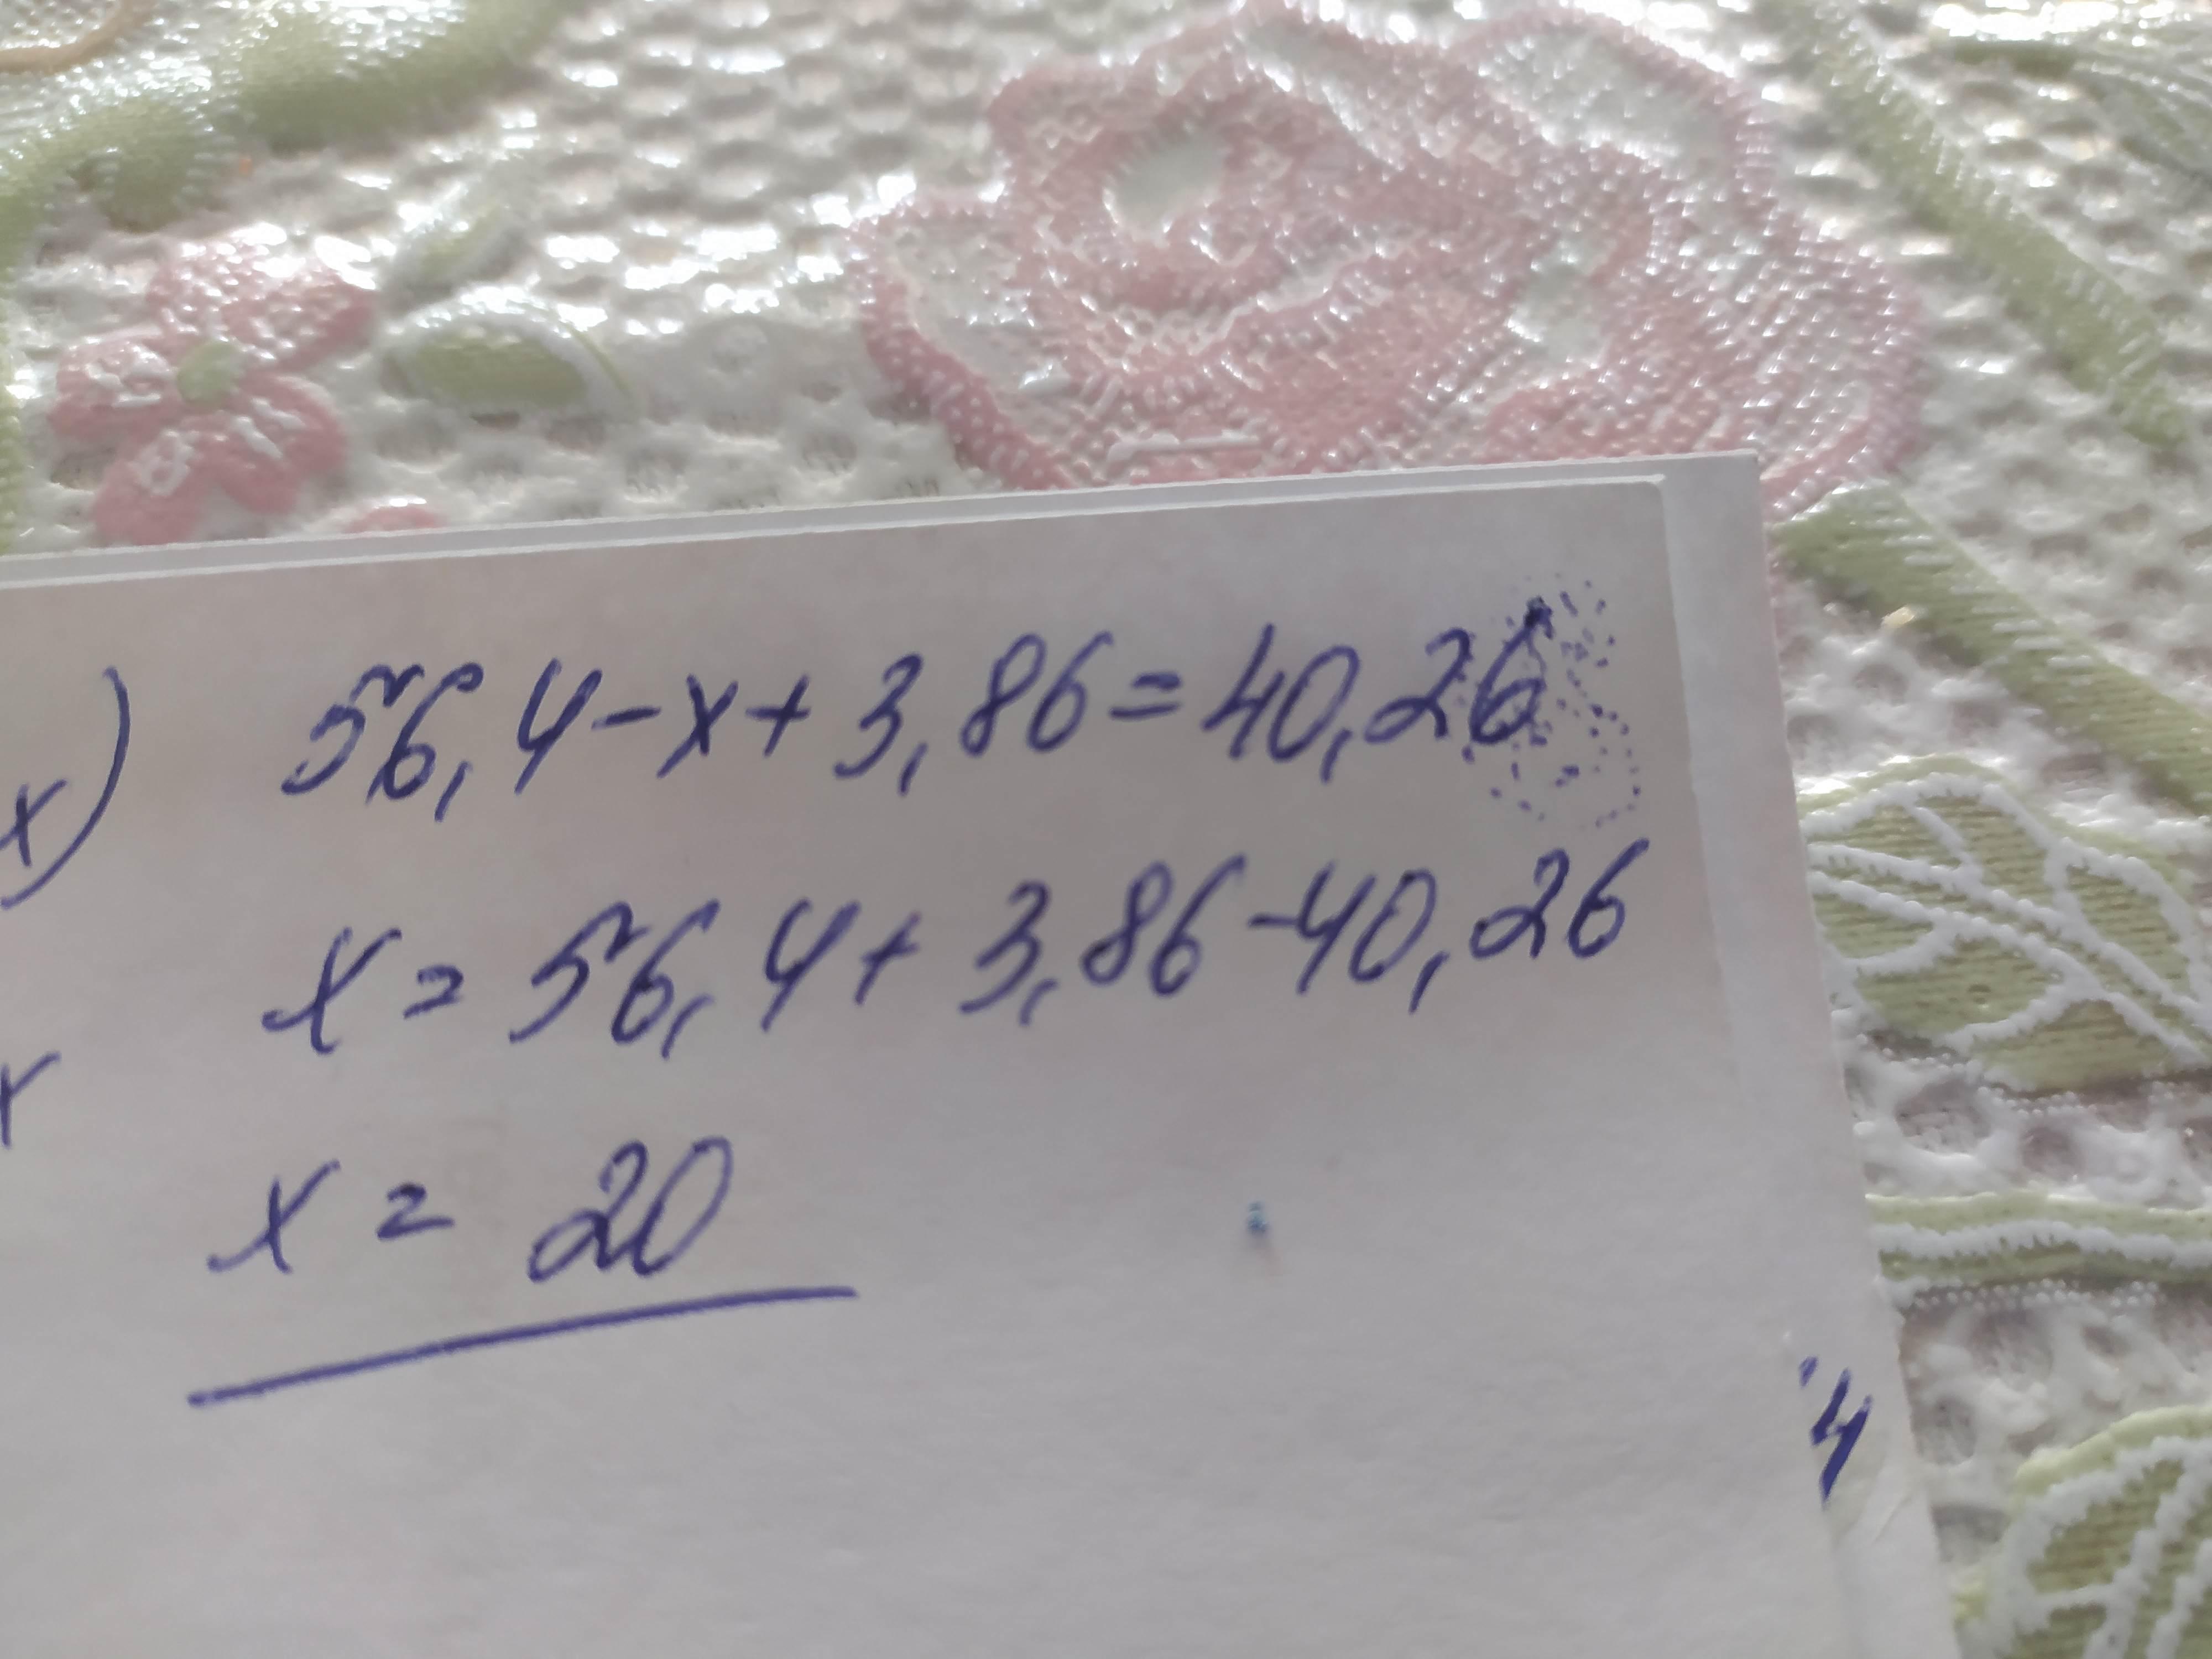 56,4-x+3,86=40,26
x)
x=56,4+3,86-40,26
x
x=20
4